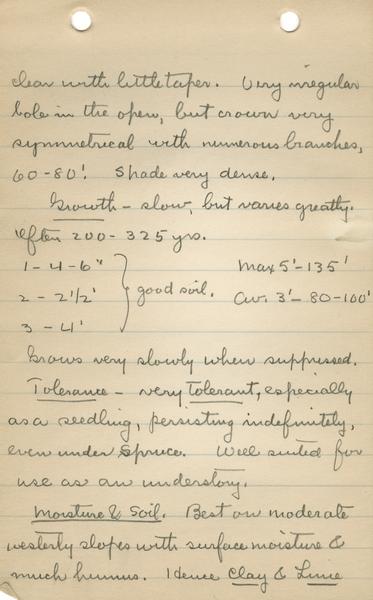 clear with little taper. Very irregular
bole in the open, but crown very
symmetrical with numerous branches,
60-80'. Shade very dense.
Growth - slow, but varies greatly.
Often 200-325 yrs.
1 - 4-6" } good soil. Max 5'-135'
2 - 2 1/2' Av. 3' - 80-100'
3 - 4'
Grows very slowly when suppressed.
Tolerance - very tolerant, especially
as a seedling, persisting indefinitely,
even under Spruce. Well suited for
use as an understory.
Moisture & Soil. Best on moderate
westerly slopes with surface moisture &
much humus. Hence Clay & Lime